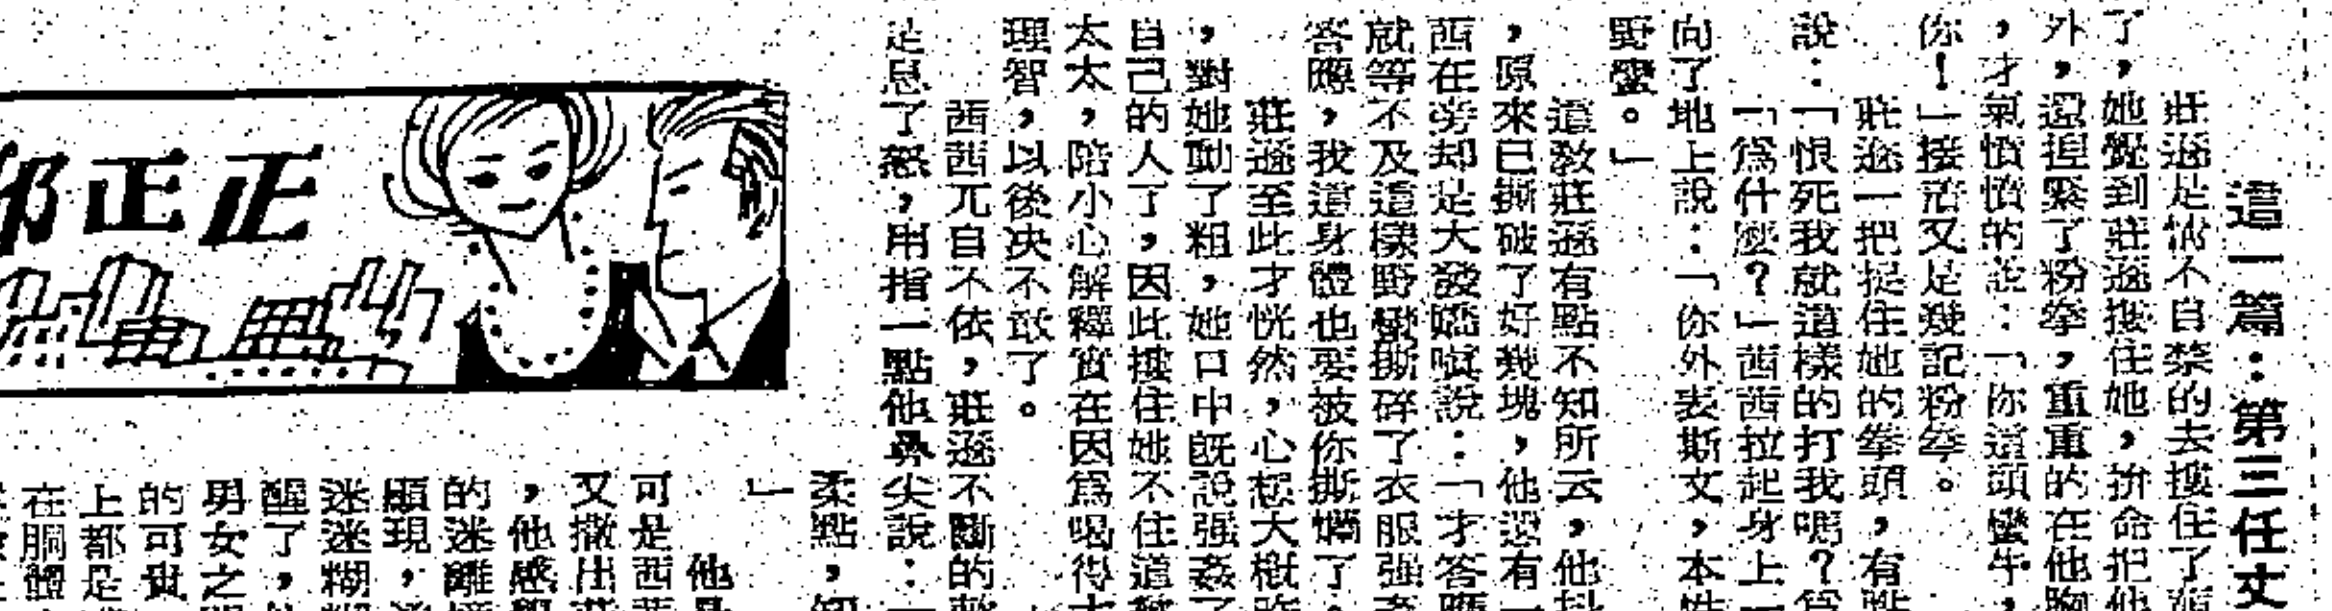 這一篇：第三任丈
莊遜是情不自禁的去摟住了
了，她覺到莊遜摟住她，拚命把他
外，還揑緊了粉拳，重重的在他胸
，才氣憤憤的說：「你這頭蠻牛，
你！」接着又是幾記粉拳。
莊遜一把捉住她的拳頭，有點
說：「恨死我就這樣的打我嗎？爲
「爲什麽？」茜茜拉起身上
向了地上說：「你外表斯文，本性
野蠻。」
這敎莊遜有點不知所云，他
，原來已撕破了好幾塊，他還有一
茜在旁却是大發嬌嗔說：「才答應
就等不及這樣野蠻撕碎了衣服强姦
答應，我這身體也要被你撕爛了。
莊遜至此才恍然，心想大槪
，對她動了粗，她口中旣說强姦了
自己的人了，因此摟住她不住道
太太，陪小心解釋實在因爲喝得
理智，以後决不敢了。
茜茜兀自不依，莊遜不斷的
是息了怒，用指一點他鼻尖說：「
柔點，
」
正正
他
可是茜茜
又撒出
，他感
的迷離
顯現，
迷迷糊
醒了，
男女之間
的可貴
上都是
在胴體